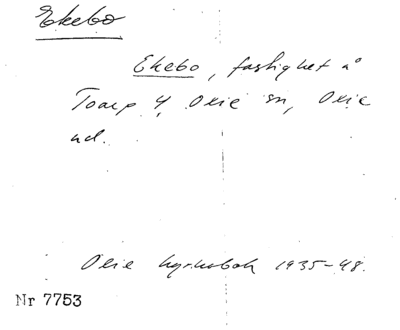 Ekebo
Ekebo, fastighet å
Toarp 4, Oxie sn, Oxie
hd.
Oxie kyrkobok 1935-48.
Nr 7753